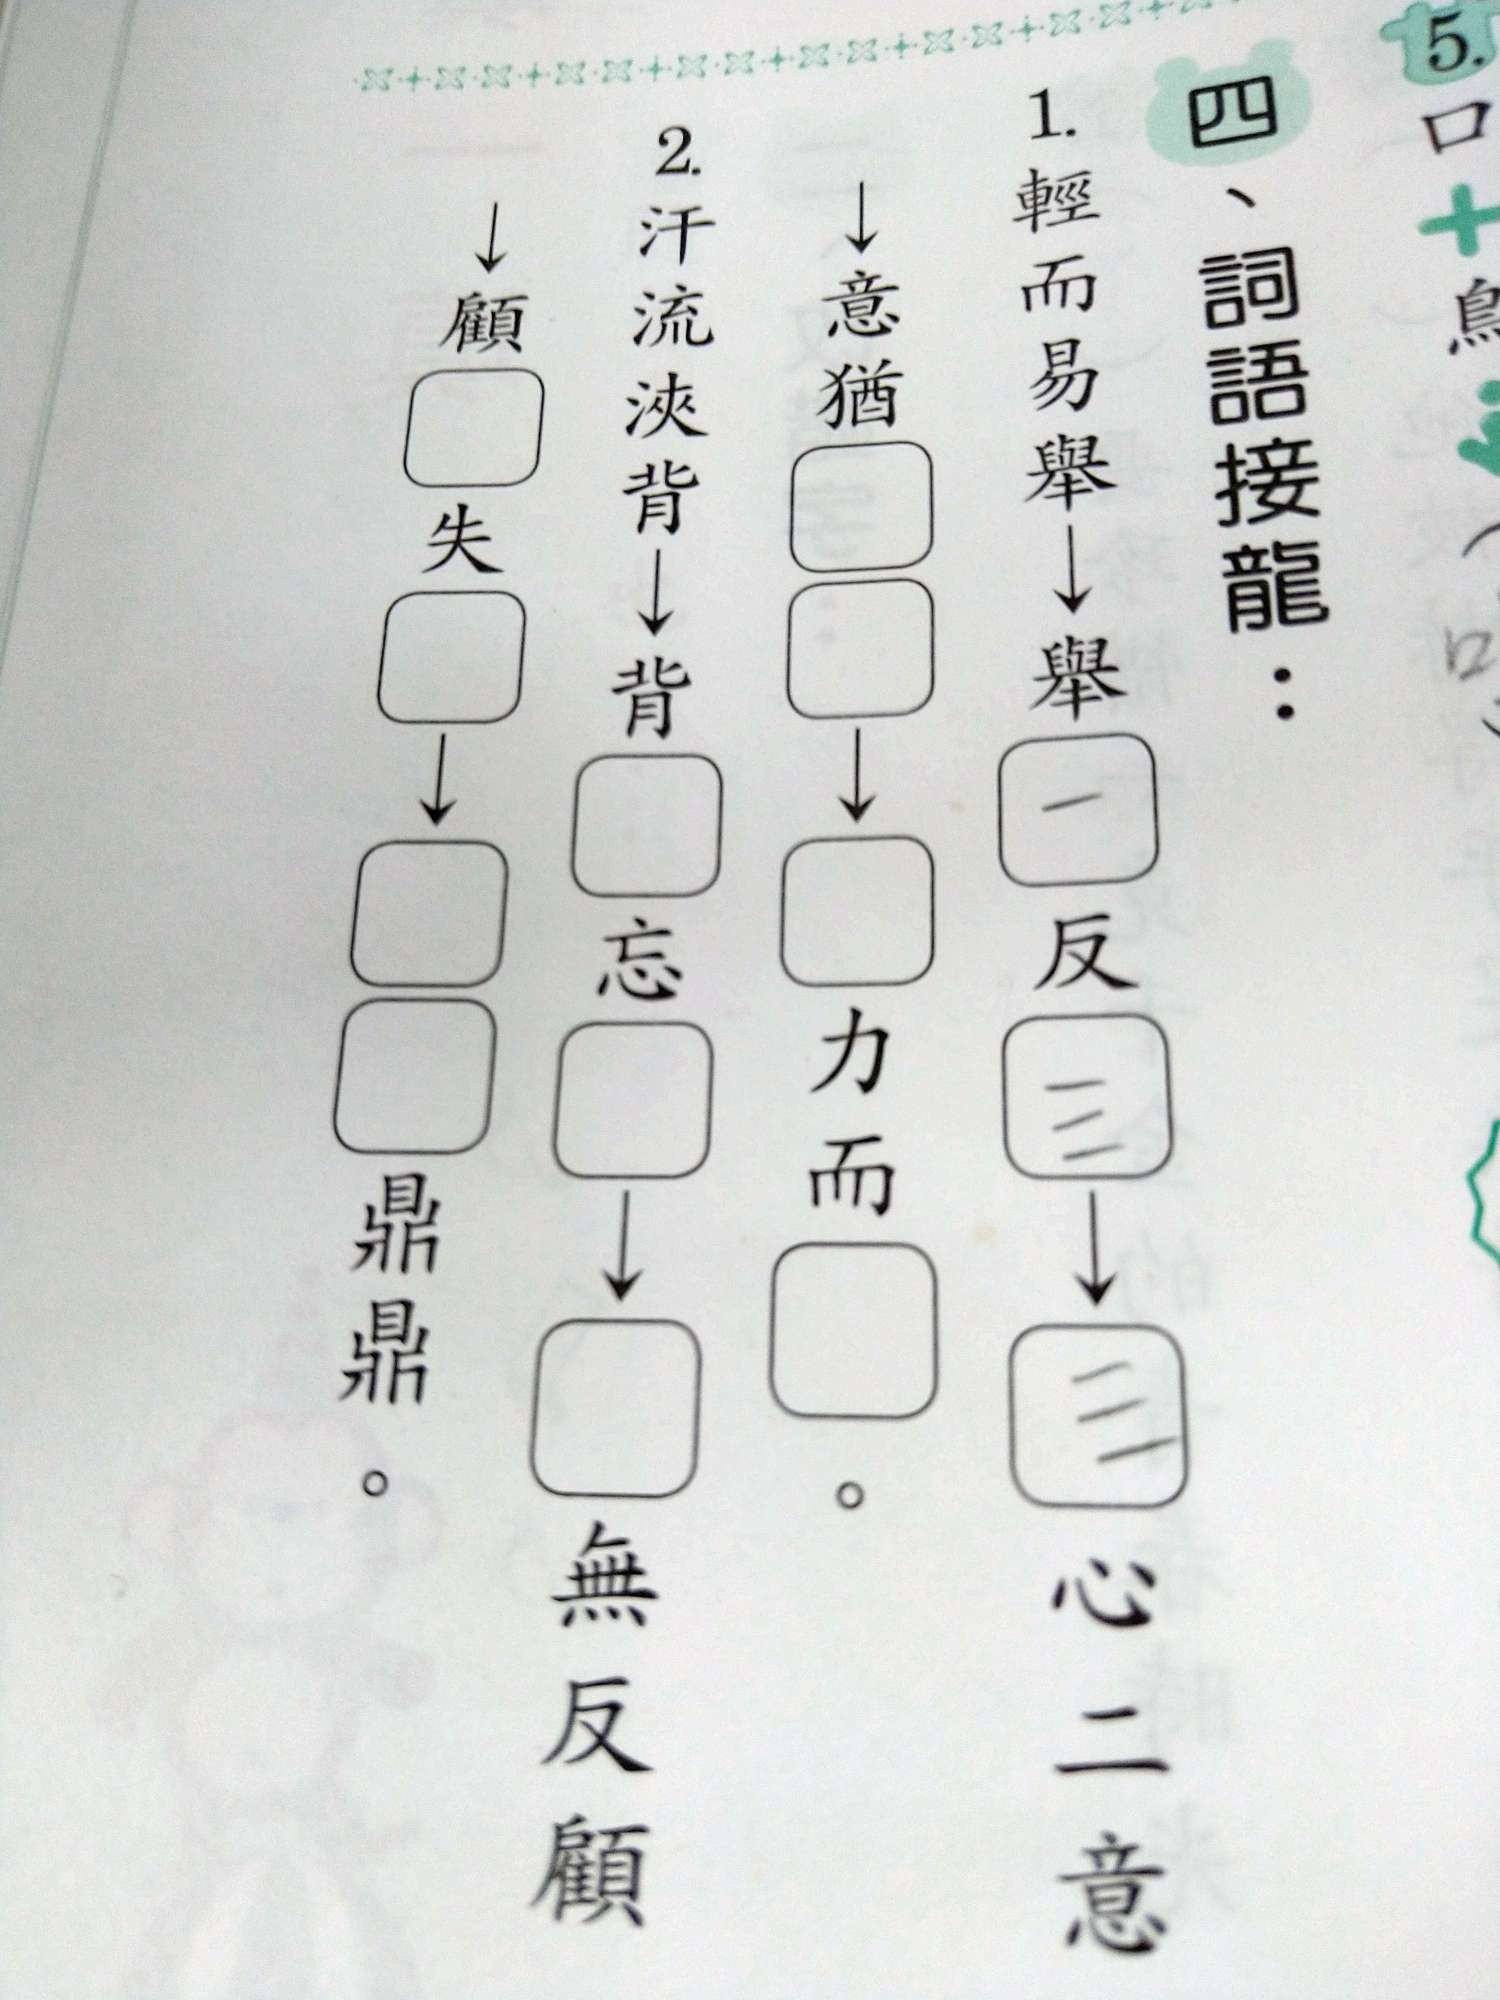 5.口＋鳥
四、詞語接龍：
1.輕而易舉→舉一反三→三心二意
→意猶□□→□力而□。
2.汗流浹背→背□忘□→□無反顧
→顧□失□→□□鼎鼎。